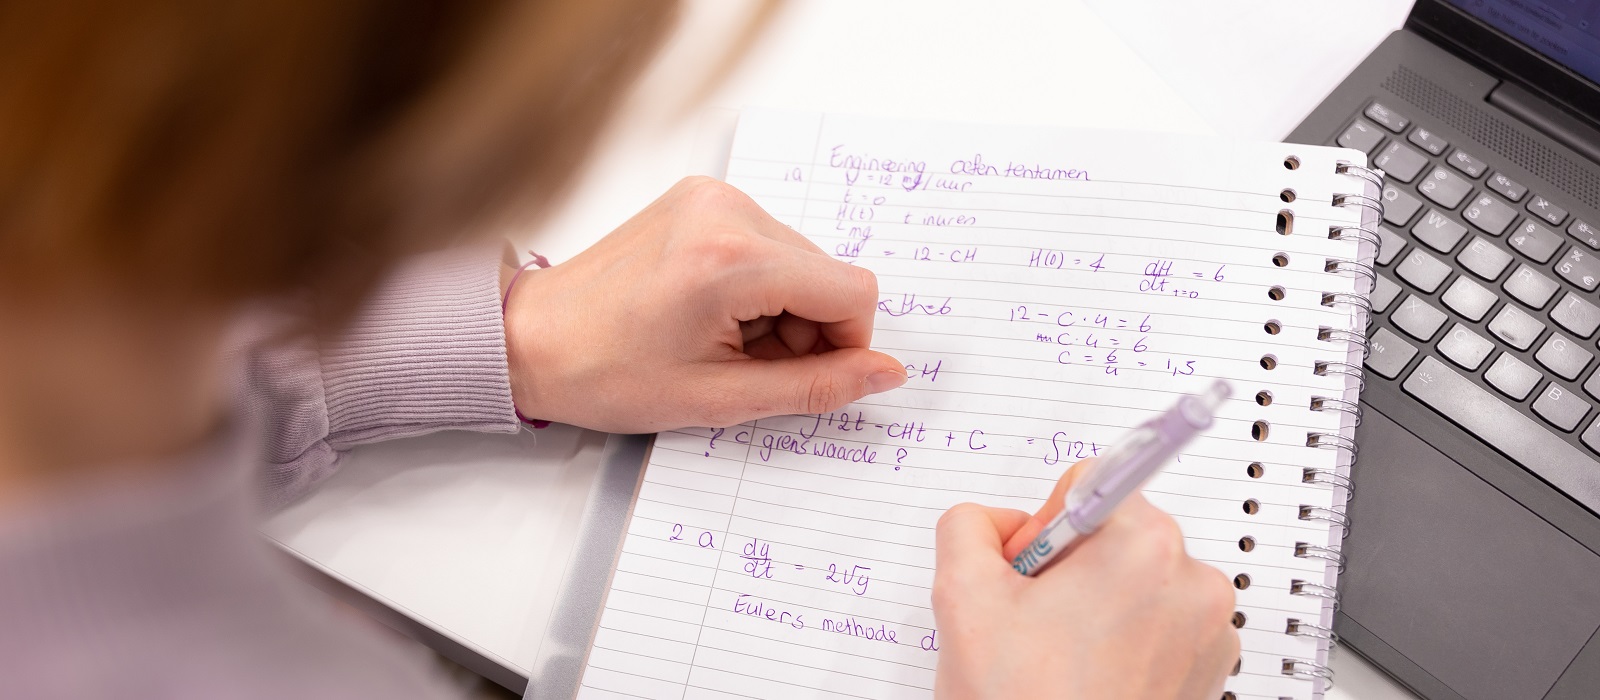 Engineering oefen tentamen
1a v = 12 mg/uur
t = 0
H(t) t in uren
mg
dH = 12 - CH H(0) = 4 dH/dt t=0 = 6
12 - C · 4 = 6
C · 4 = 6
C = 6/4 = 1,5
CH
∫12t - CHt + C = ∫12t
? c grenswaarde ?
2 a dy/dt = 2√y
Eulers methode d